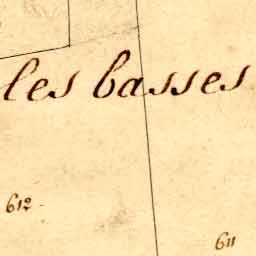 les basses
612
611